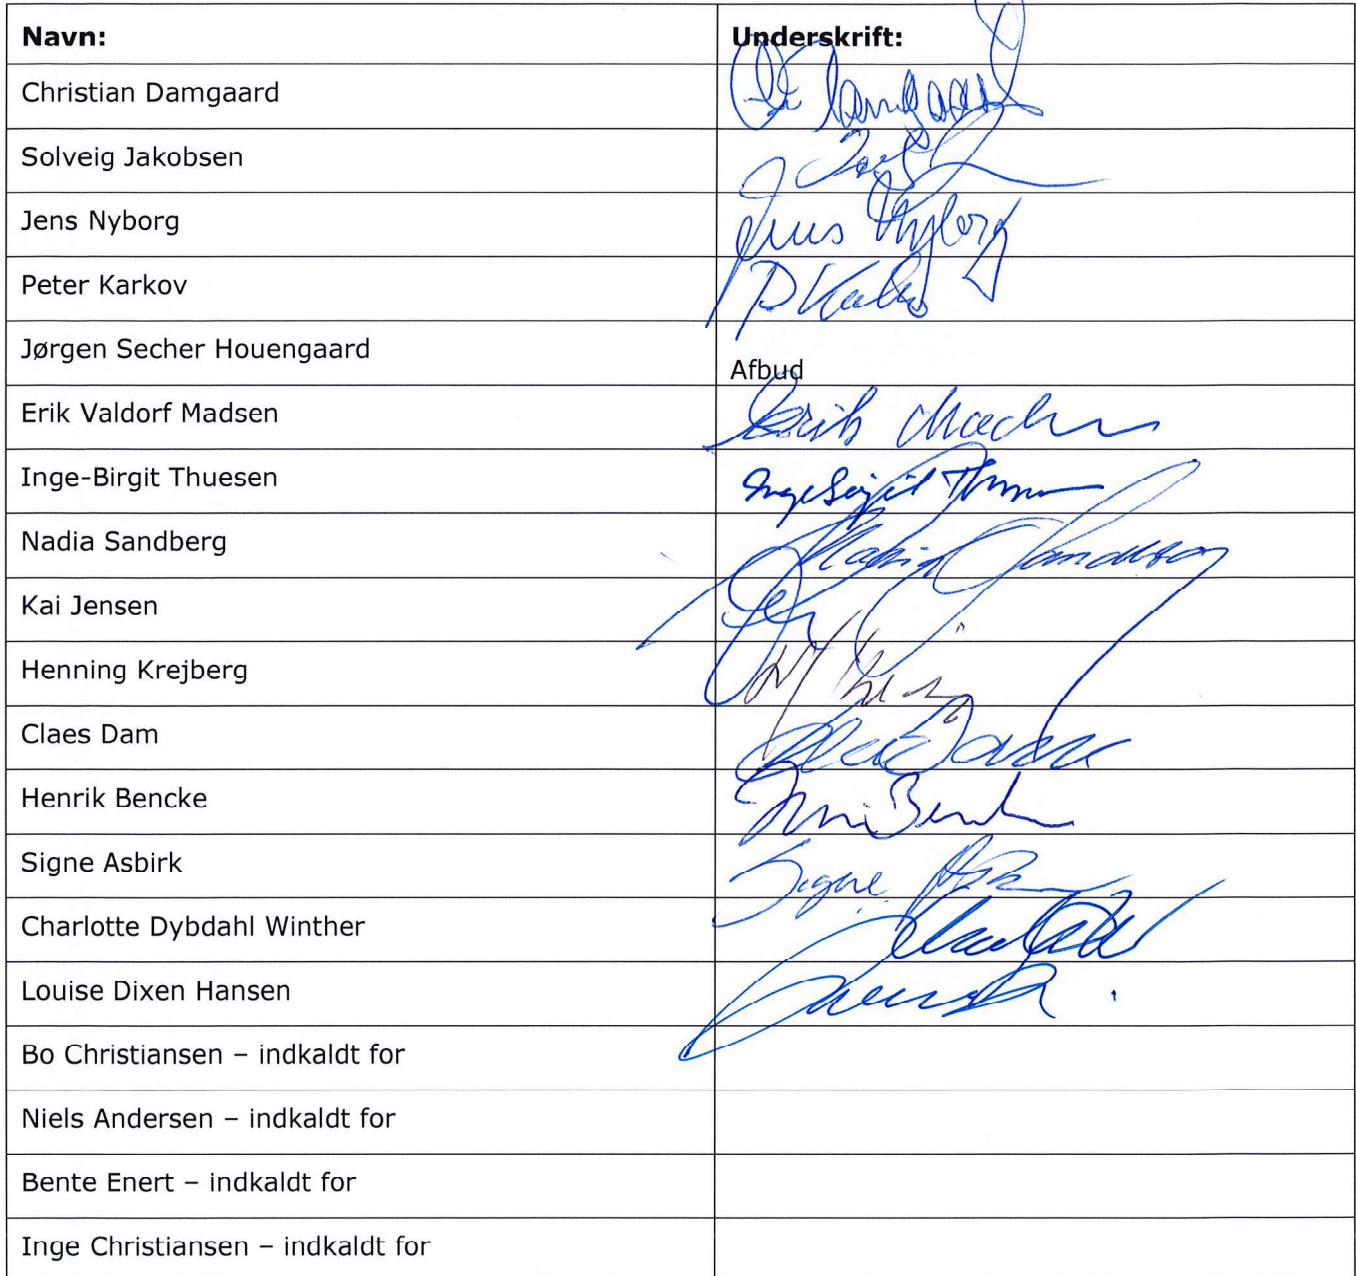 Navn: Underskrift:
Christian Damgaard
Solveig Jakobsen
Jens Nyborg Jens Nyborg
Peter Karkov
Jørgen Secher Houengaard Afbud
Erik Valdorf Madsen Erik
Inge-Birgit Thuesen
Nadia Sandberg Nadia Sandberg
Kai Jensen
Henning Krejberg
Claes Dam
Henrik Bencke
Signe Asbirk Signe
Charlotte Dybdahl Winther
Louise Dixen Hansen
Bo Christiansen – indkaldt for
Niels Andersen – indkaldt for
Bente Enert – indkaldt for
Inge Christiansen – indkaldt for